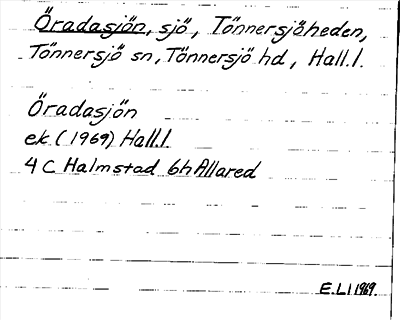 Öradasjön, sjö, Tönnersjöheden,
Tönnersjö sn, Tönnersjö hd, Hall.l.
Öradasjön
ek (1969) Hall.l.
4C Halmstad 6h Allared
E.L1 1969.